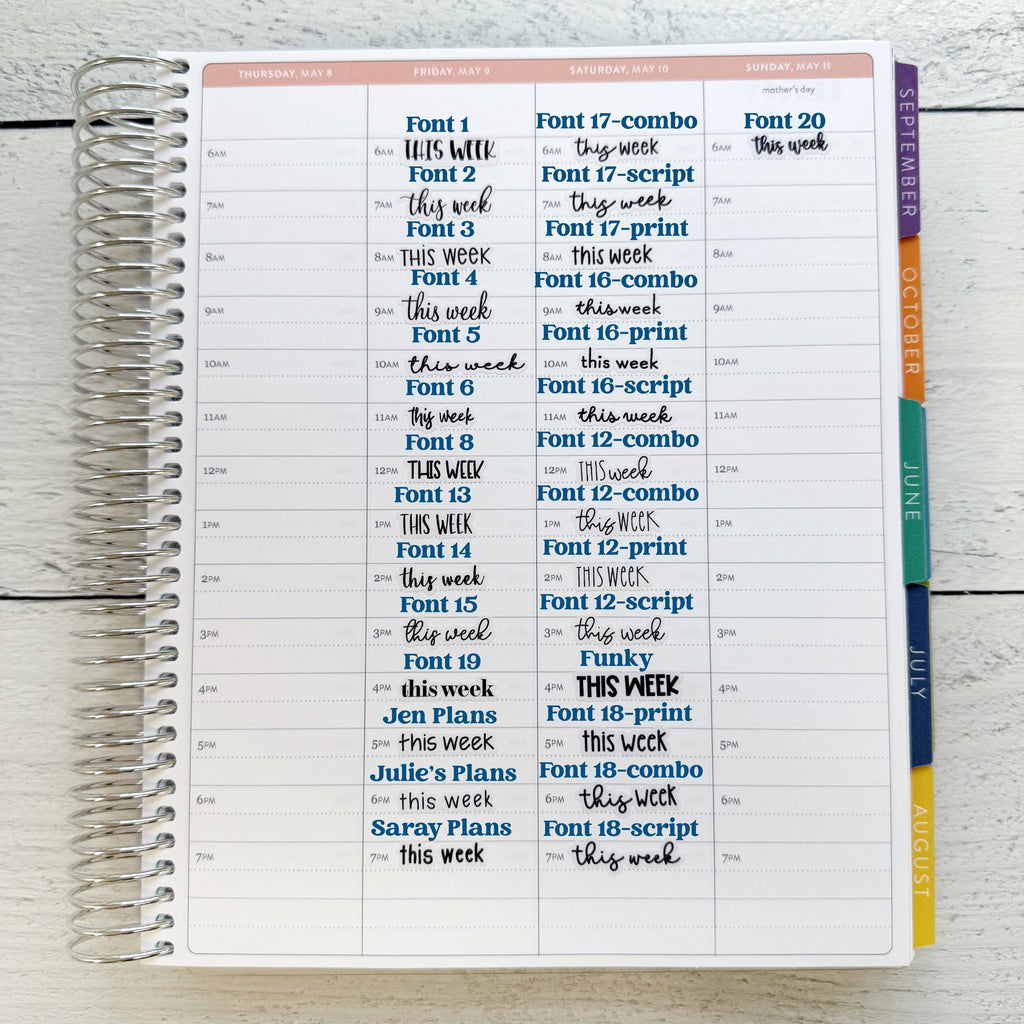 THURSDAY, MAY 8
FRIDAY, MAY 9
SATURDAY, MAY 10
SUNDAY, MAY 11
mother's day
6AM
7AM
8AM
9AM
10AM
11AM
12PM
1PM
2PM
3PM
4PM
5PM
6PM
7PM
Font 1
6AM THIS WEEK
Font 2
7AM this week
Font 3
8AM THIS WEEK
Font 4
9AM this week
Font 5
10AM this week
Font 6
11AM this week
Font 8
12PM THIS WEEK
Font 13
1PM THIS WEEK
Font 14
2PM this week
Font 15
3PM this week
Font 19
4PM this week
Jen Plans
5PM this week
Julie's Plans
6PM this week
Saray Plans
7PM this week
Font 17-combo
6AM this week
Font 17-script
7AM this week
Font 17-print
8AM this week
Font 16-combo
9AM this week
Font 16-print
10AM this week
Font 16-script
11AM this week
Font 12-combo
12PM THIS week
Font 12-combo
1PM this WEEK
Font 12-print
2PM THIS WEEK
Font 12-script
3PM this week
Funky
4PM THIS WEEK
Font 18-print
5PM this week
Font 18-combo
6PM this week
Font 18-script
7PM this week
Font 20
6AM this week
7AM
8AM
9AM
10AM
11AM
12PM
1PM
2PM
3PM
4PM
5PM
6PM
7PM
SEPTEMBER
OCTOBER
JUNE
JULY
AUGUST